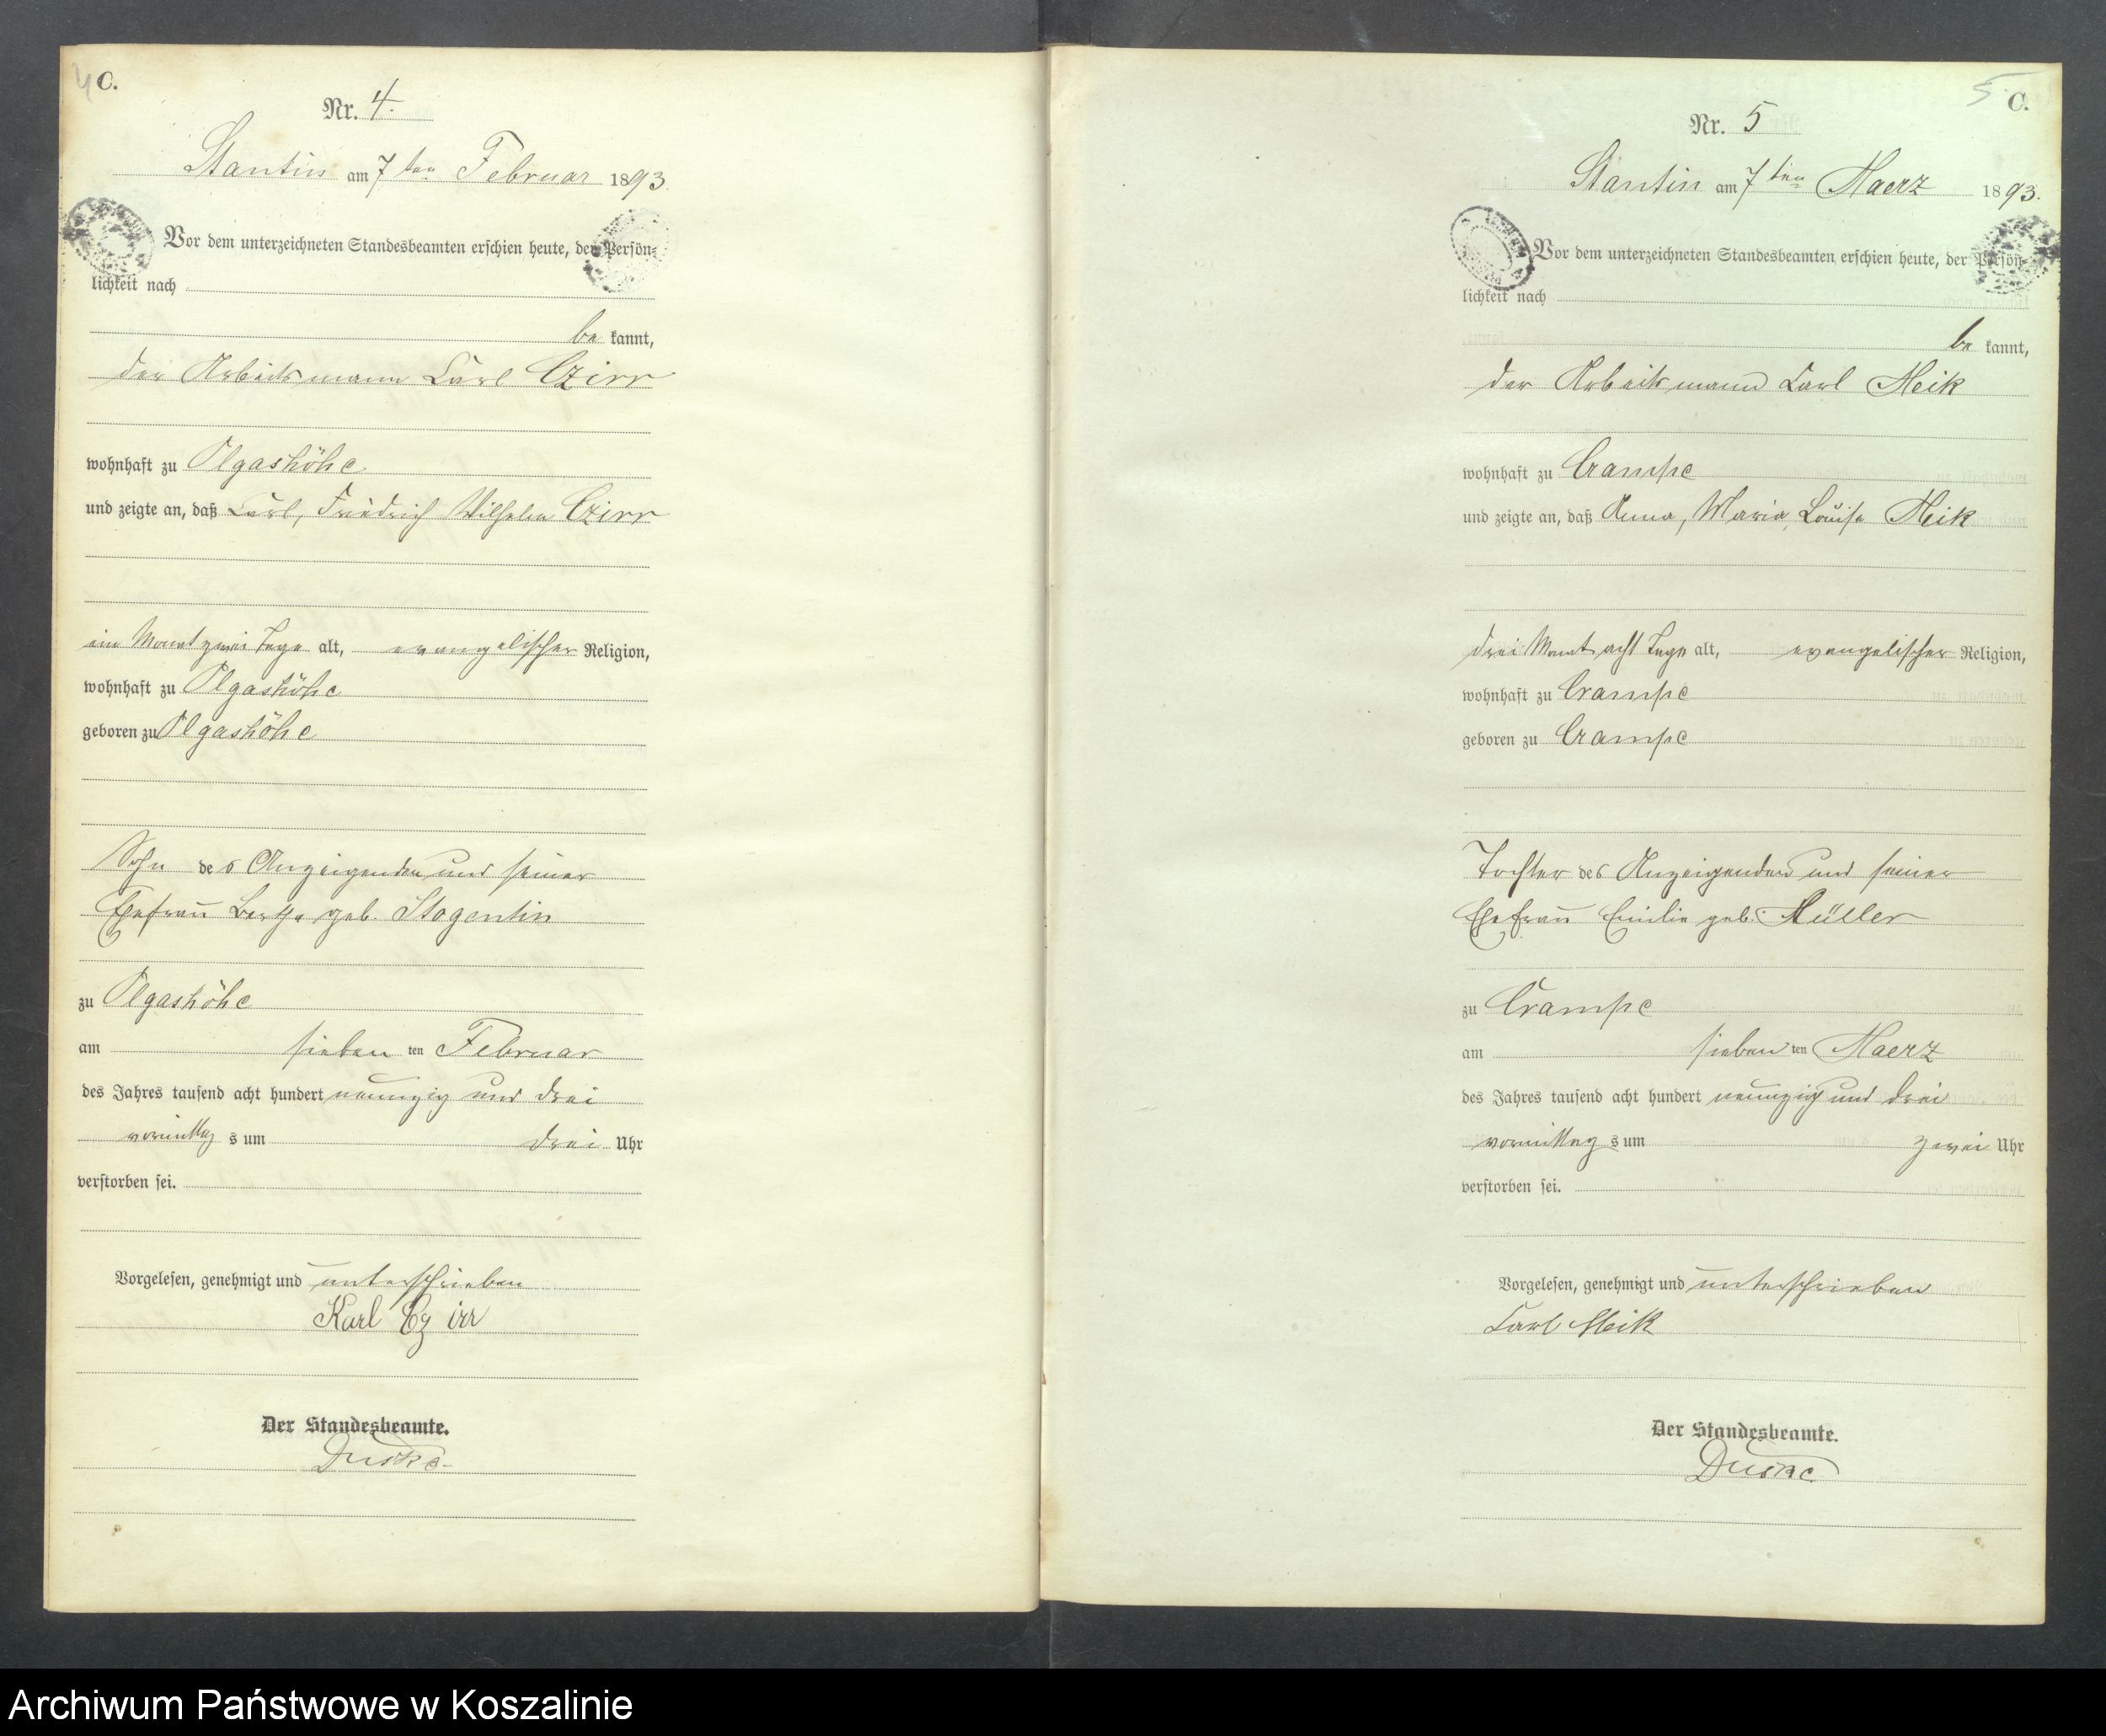 4 C.
Nr. 4.
Stantin am 7ten Februar 1893.
Vor dem unterzeichneten Standesbeamten erschien heute, der Persön-
lichkeit nach
be kannt,
der Arbeitsmann Carl Czirr
wohnhaft zu Olgashöhe
und zeigte an, daß Carl, Friedrich Wilhelm Czirr
ein Monat zwei Tage alt, evangelischer Religion,
wohnhaft zu Olgashöhe
geboren zu Olgashöhe
Sohn des Anzeigenden und seiner
Ehefrau Bertha geb. Stogentin
zu Olgashöhe
am sieben ten Februar
des Jahres tausend acht hundert neunzig und drei
vormittag s um drei Uhr
verstorben sei.
Vorgelesen, genehmigt und unterschrieben
Karl Czirr
Der Standesbeamte.
Duske
5 C.
Nr. 5
Stantin am 7ten Maerz 1893.
Vor dem unterzeichneten Standesbeamten erschien heute, der Persön-
lichkeit nach
be kannt,
der Arbeitsmann Carl Meik
wohnhaft zu Crampe
und zeigte an, daß Anna, Maria, Louise Meik
drei Monat acht Tage alt, evangelischer Religion,
wohnhaft zu Crampe
geboren zu Crampe
Tochter des Anzeigenden und seiner
Ehefrau Emilie geb. Müller
zu Crampe
am sieben ten Maerz
des Jahres tausend acht hundert neunzig und drei
vormittag s um zwei Uhr
verstorben sei.
Vorgelesen, genehmigt und unterschrieben
Carl Meik
Der Standesbeamte.
Duske
Archiwum Państwowe w Koszalinie